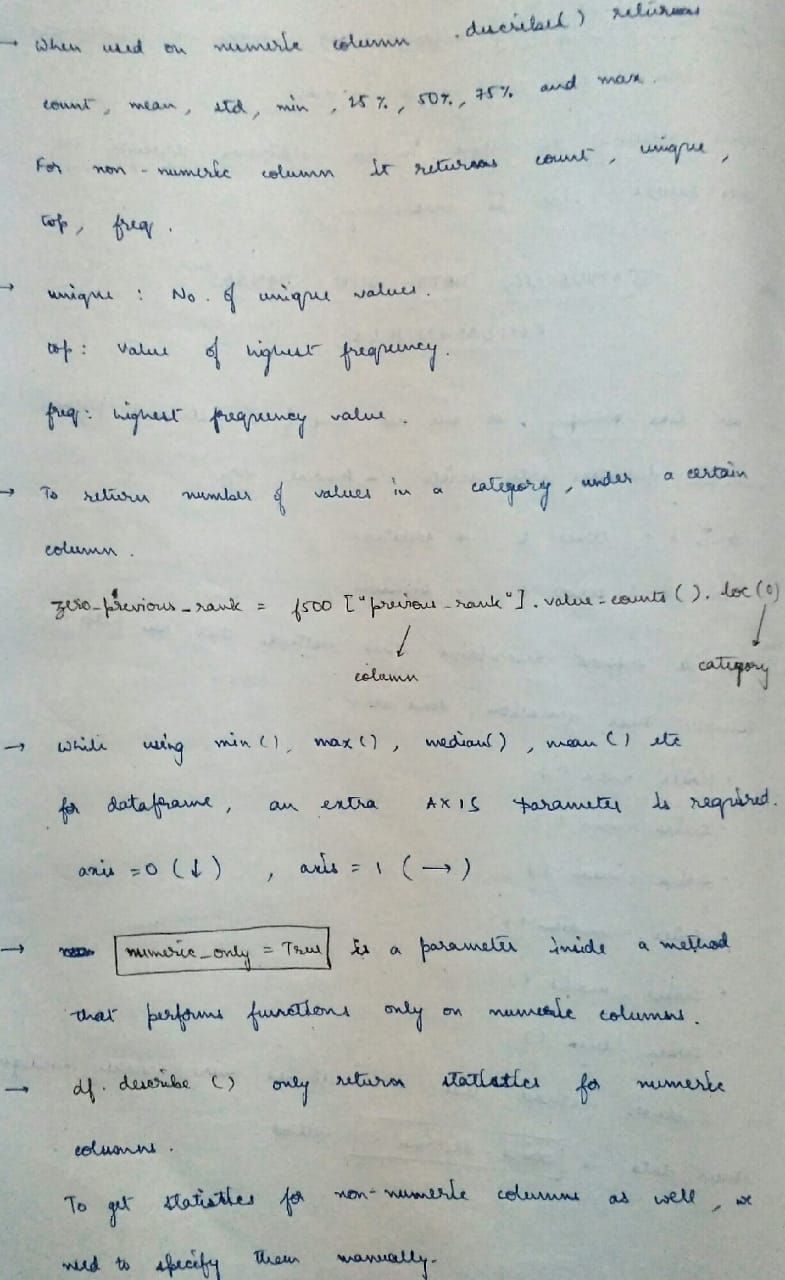 → When used on numeric column .describe() returns
count, mean, std, min, 25%, 50%, 75% and max.
For non-numeric column it returns count, unique,
top, freq.
→ unique : No. of unique values.
top : value of highest frequency.
freq : highest frequency value.
→ To return number of values in a category, under a certain
column.
zero_previous_rank = f500 ["previous_rank"].value_counts().loc(0)
column category
→ While using min(), max(), median(), mean() etc
for dataframe, an extra AXIS parameter is required.
axis = 0 (↓) , axis = 1 (→)
→ numeric_only = True is a parameter inside a method
that performs functions only on numeric columns.
→ df.describe() only return statistics for numeric
columns.
To get statistics for non-numeric columns as well, we
need to specify them manually.